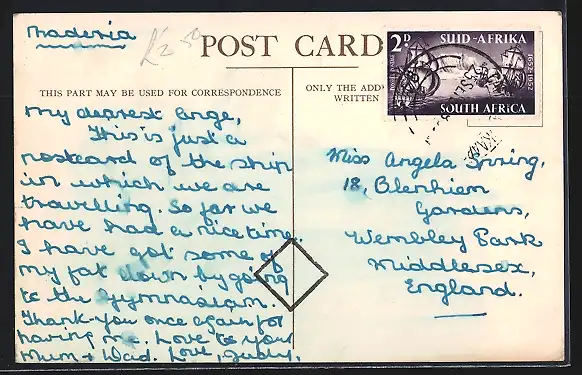 Maderia
R2 50
POST CARD
THIS PART MAY BE USED FOR CORRESPONDENCE
ONLY THE ADD
WRITTEN
2D SUID-AFRIKA
1652-1952
SOUTH AFRICA
My dearest Ange,
This is just a
postcard of the ship
in which we are
travelling. So far we
have had a nice time.
I have got some of
my fat down by going
to the Gymnasium.
Thank-you once again for
having me. Love to your
Mum + Dad. Love, Judy.
Miss Angela Irving,
18, Blenhiem
Gardens,
Wembley Park
Middlesex,
England.